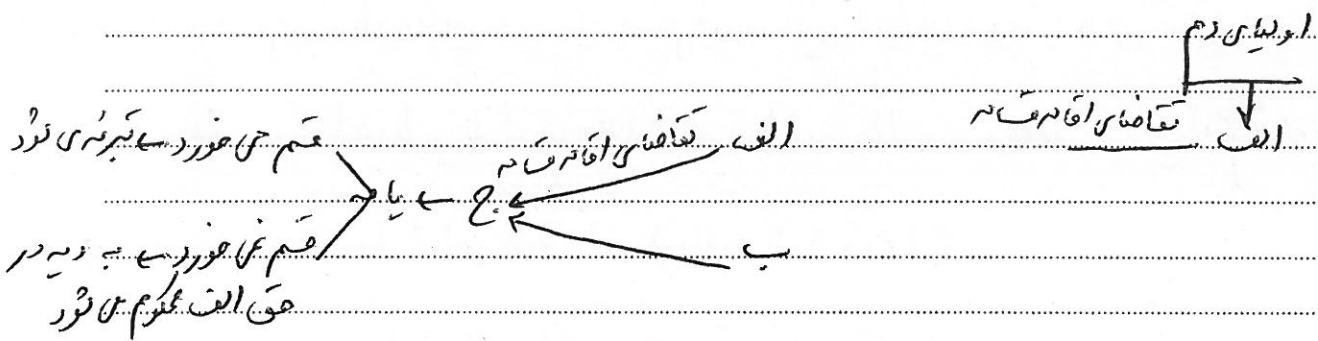 اولیای دم
الف تقاضای اقامه قسامه
الف تقاضای اقامه قسامه
قسم می خورد ← تبرئه می شود
ب
ج ← یا
قسم نمی خورد ← به دیه در
حق الف محکوم می شود